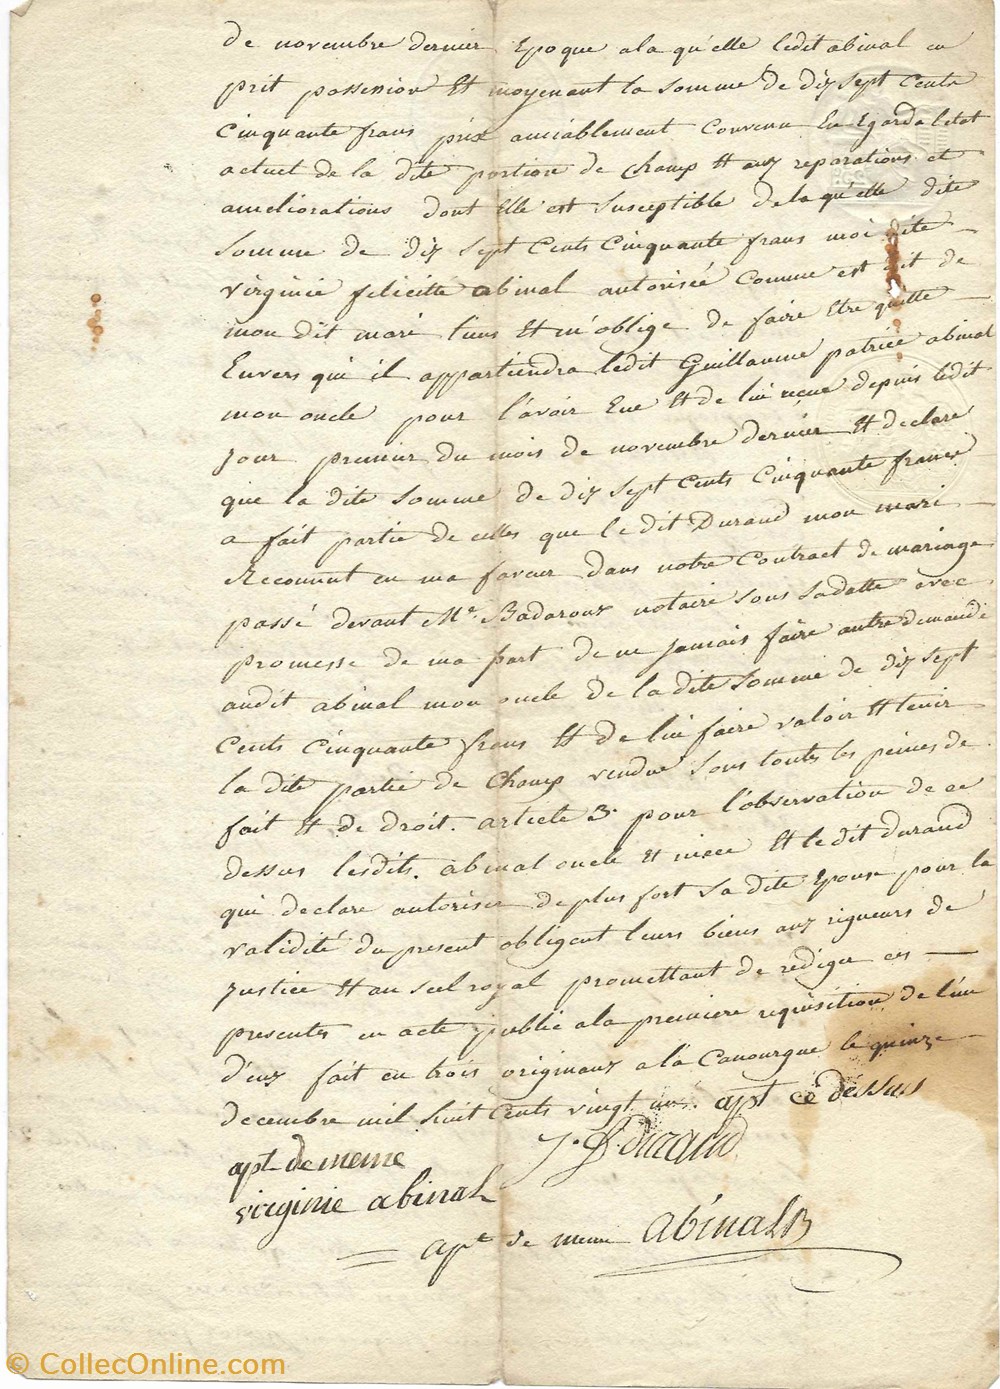 de novembre dernier Epoque ala qu'elle ledit abinal en
prit possession Et moyenant la somme de dix sept Cents
Cinquante frans prix amiablement Convenu En Egard a letat
actuel de la dite portion de champ Et aux reparations et
ameliorations dont Elle est susceptible dela qu'elle dite
somme de dix sept Cents Cinquante frans moi dite
virginie felicitte abinal autorisée Comme est dit de
mon dit mari tiens Et m'oblige de faire Etre quitte
Envers qui il appartiendra ledit Guillaume patrice abinal
mon oncle pour l'avoir Eue Et de lui recue depuis ledit
jour premier du mois de novembre dernier Et declare
que la dite somme de dix sept Cents Cinquante francs
a fait partie de celles que le dit Durand mon mari
Reconnut en ma faveur dans notre Contract de mariage
passé devant Me. Badaroux notaire sous sa datte avec
promesse de ma part de ne jamais faire autre demande
audit abinal mon oncle de la dite somme de dix sept
Cents Cinquante frans Et de lui faire valoir Et tenir
la dite partie de Champ vendue sous toutes les peines de
fait Et de droit. article 3. pour l'observation de ce
dessus lesdits. abinal oncle et niece Et le dit durand
qui declare autoriser de plus fort sa dite Epouse pour la
validité du present obligent leurs biens aux rigueurs de
justice Et au scel royal promettant de rediger ces
presentes en acte public ala premiere requisition de l'un
d'eux fait en trois originaux a la Canourgue le quinze
decembre mil huit Cents vingt un. apt ce dessus
J. durand
apt de meme
virginie abinal
apt de meme abinal
© CollecOnline.com